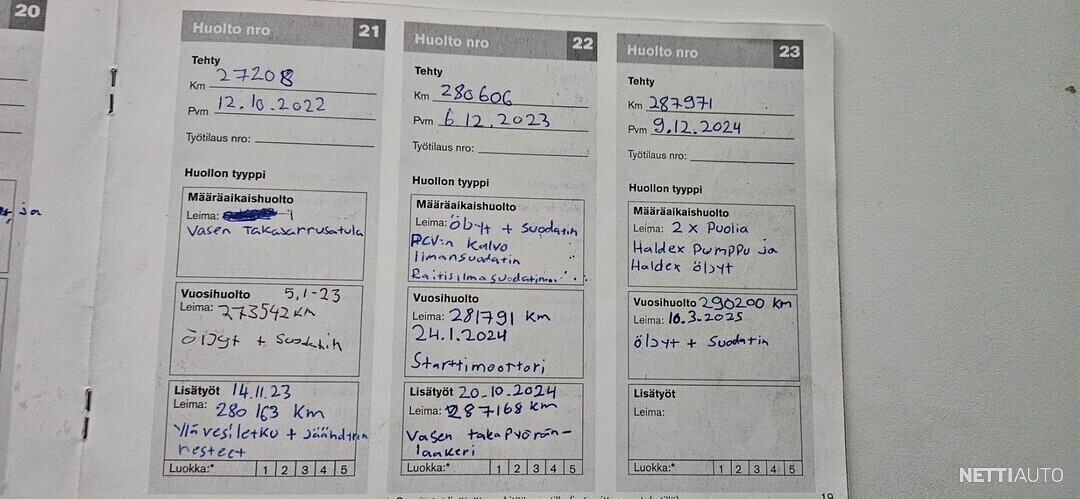 20
ja
Huolto nro 21
Tehty
Km 27208
Pvm 12.10.2022
Työtilaus nro:
Huollon tyyppi
Määräaikaishuolto
Leima:
Vasen Takajarrusatula
Vuosihuolto 5,1-23
Leima: 273542 KM
Öljyt + Suodatin
Lisätyöt 14.11.23
Leima: 280163 Km
Ylävesiletku + Jäähdytin
nesteet
Luokka:* 1 2 3 4 5
Huolto nro 22
Tehty
Km 280606
Pvm 6.12.2023
Työtilaus nro:
Huollon tyyppi
Määräaikaishuolto
Leima: Öljyt + Suodatin
PCV:n Kalvo
Ilmansuodatin
Raitisilmasuodatin...
Vuosihuolto
Leima: 281791 Km
24.1.2024
Starttimoottori
Lisätyöt 20.10.2024
Leima: 287168 KM
Vasen takapyörän-
laakeri
Luokka:* 1 2 3 4 5
Huolto nro 23
Tehty
Km 287971
Pvm 9.12.2024
Työtilaus nro:
Huollon tyyppi
Määräaikaishuolto
Leima: 2 x Puolia
Haldex Pumppu ja
Haldex öljyt
Vuosihuolto 290200 Km
Leima: 10.3.2025
öljyt + Suodatin
Lisätyöt
Leima:
Luokka:* 1 2 3 4 5
19
NETTIAUTO